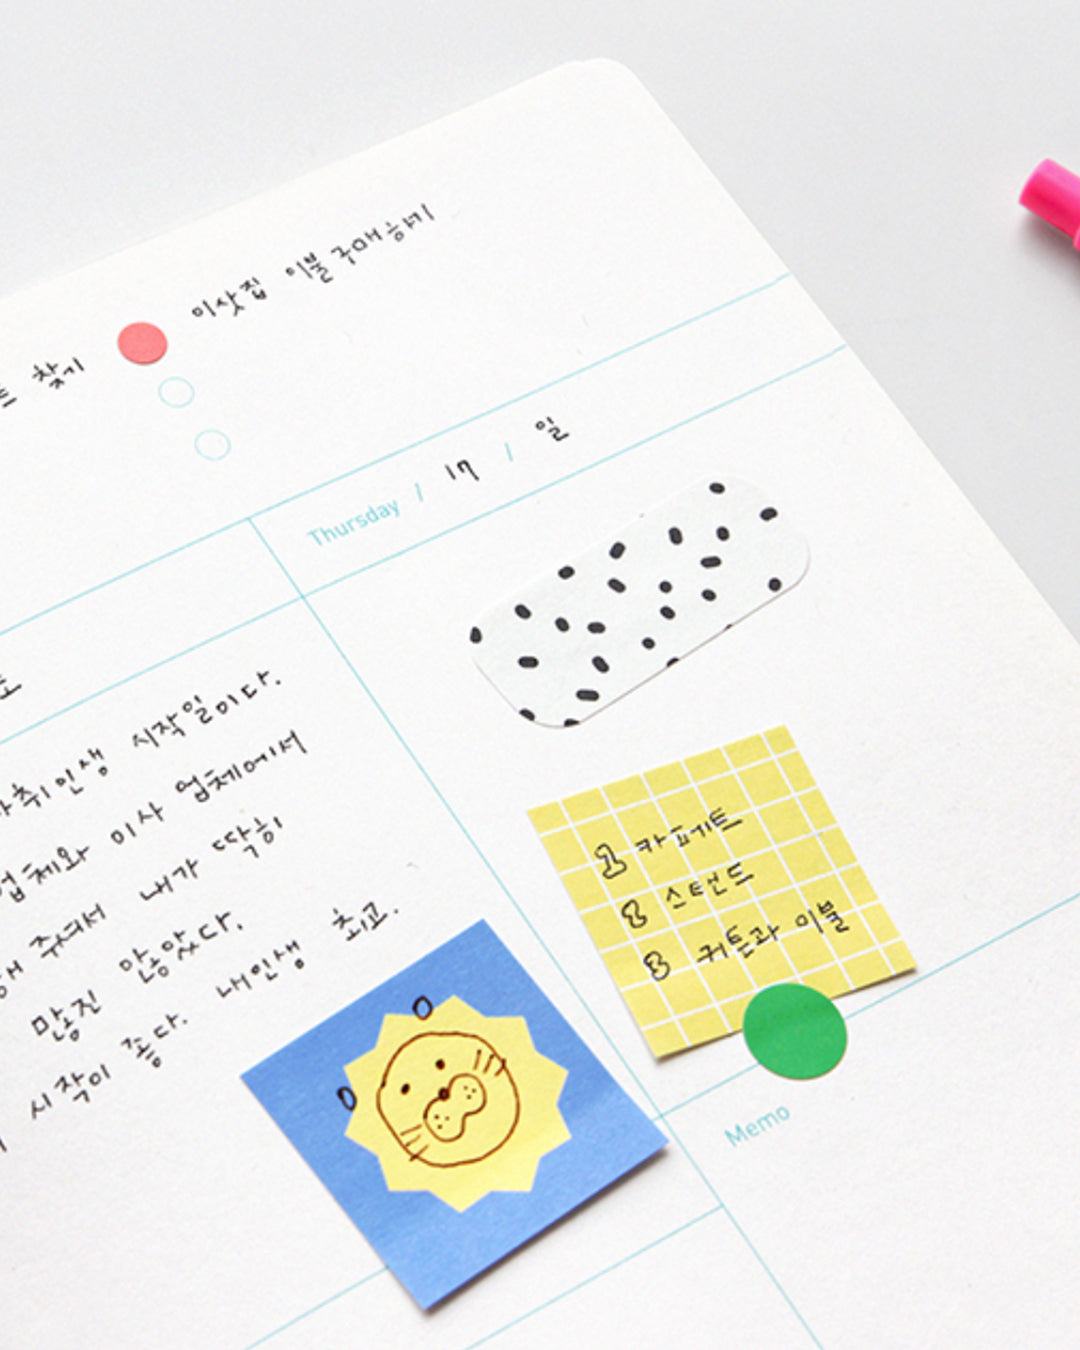 찾기
이삿짐 이불 구매하기
Thursday / 17 / 일
취인생 시작일이다.
업체와 이사 업체에서
줘서 내가 딱히
많진 않았다.
시작이 좋다. 내인생 최고.
1 카페트
2 스탠드
3 커튼과 이불
Memo